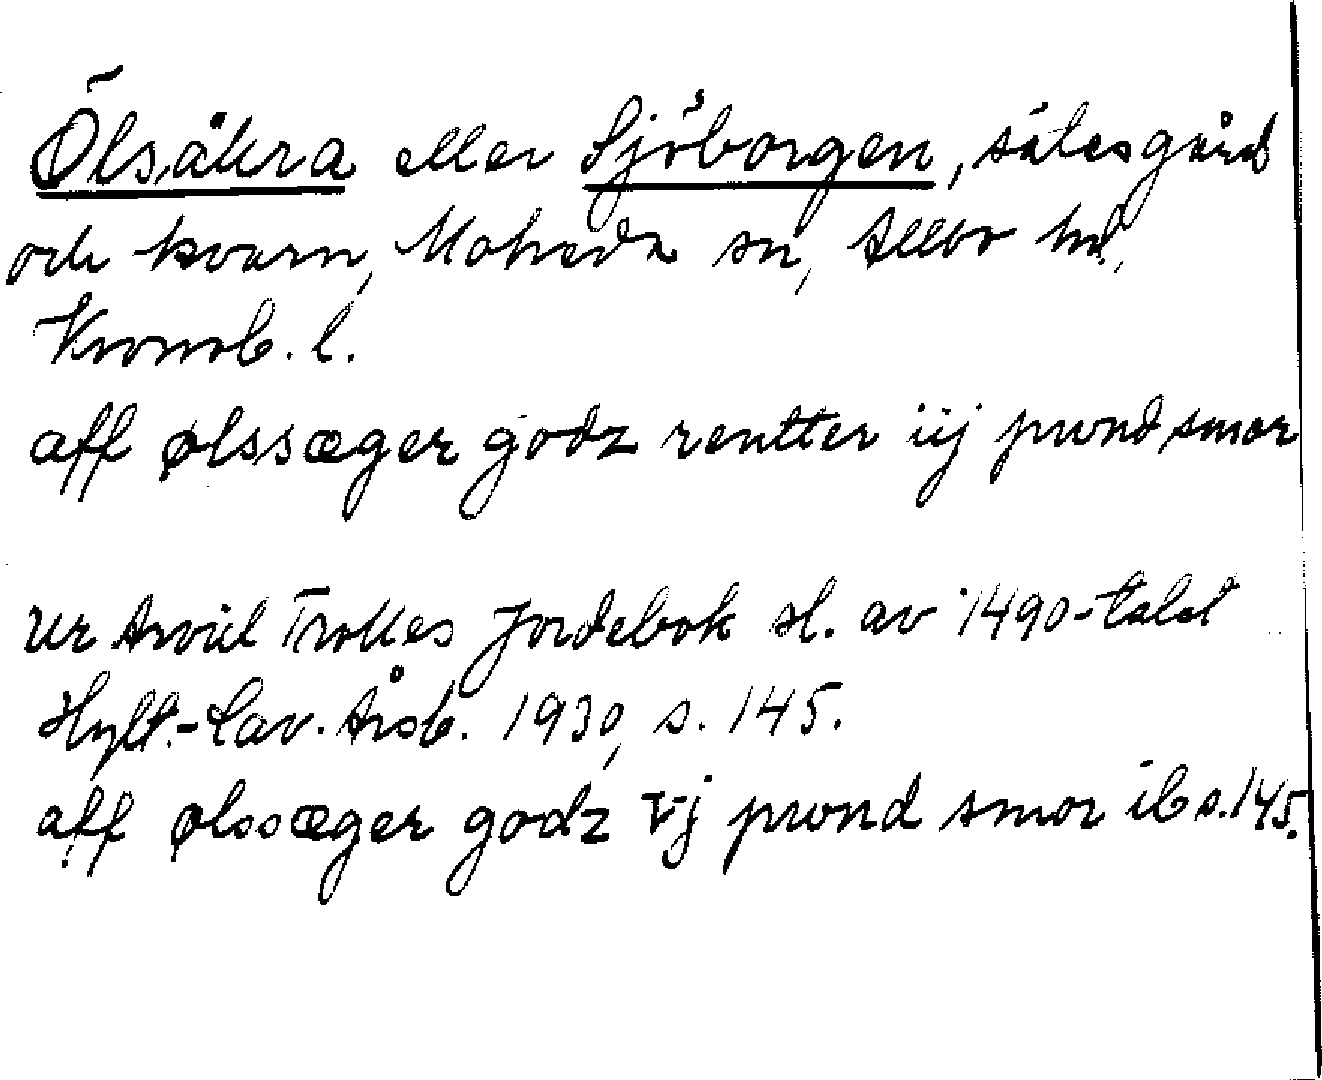 Ölsåkra eller Sjöborgen, sätesgård
och kvarn, Moheda sn, Allbo hd,
Kronob. l.
aff ølssæger godz rentter iij pwnd smør
Ur Arvid Trolles Jordebok sl. av 1490-talet
Hylt.-Cav. Årsb. 1930, s. 145.
aff ølssæger godz vj pwnd smør ib s. 145.